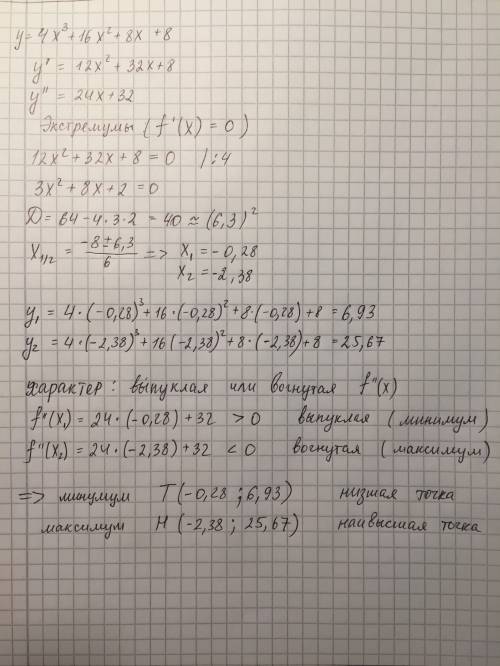 y = 4x³ + 16x² + 8x + 8
y' = 12x² + 32x + 8
y'' = 24x + 32
Экстремумы ( f'(x) = 0 )
12x² + 32x + 8 = 0 /:4
3x² + 8x + 2 = 0
D = 64 - 4·3·2 = 40 ≈ (6,3)²
X₁/₂ = (-8 ± 6,3)/6 => X₁ = -0,28
X₂ = -2,38
y₁ = 4·(-0,28)³ + 16·(-0,28)² + 8·(-0,28) + 8 = 6,93
y₂ = 4·(-2,38)³ + 16(-2,38)² + 8·(-2,38) + 8 = 25,67
Характер: выпуклая или вогнутая f''(x)
f''(x₁) = 24·(-0,28) + 32 > 0 выпуклая (минимум)
f''(x₂) = 24·(-2,38) + 32 < 0 вогнутая (максимум)
=> минимум T (-0,28 ; 6,93) низшая точка
максимум H (-2,38 ; 25,67) наивысшая точка